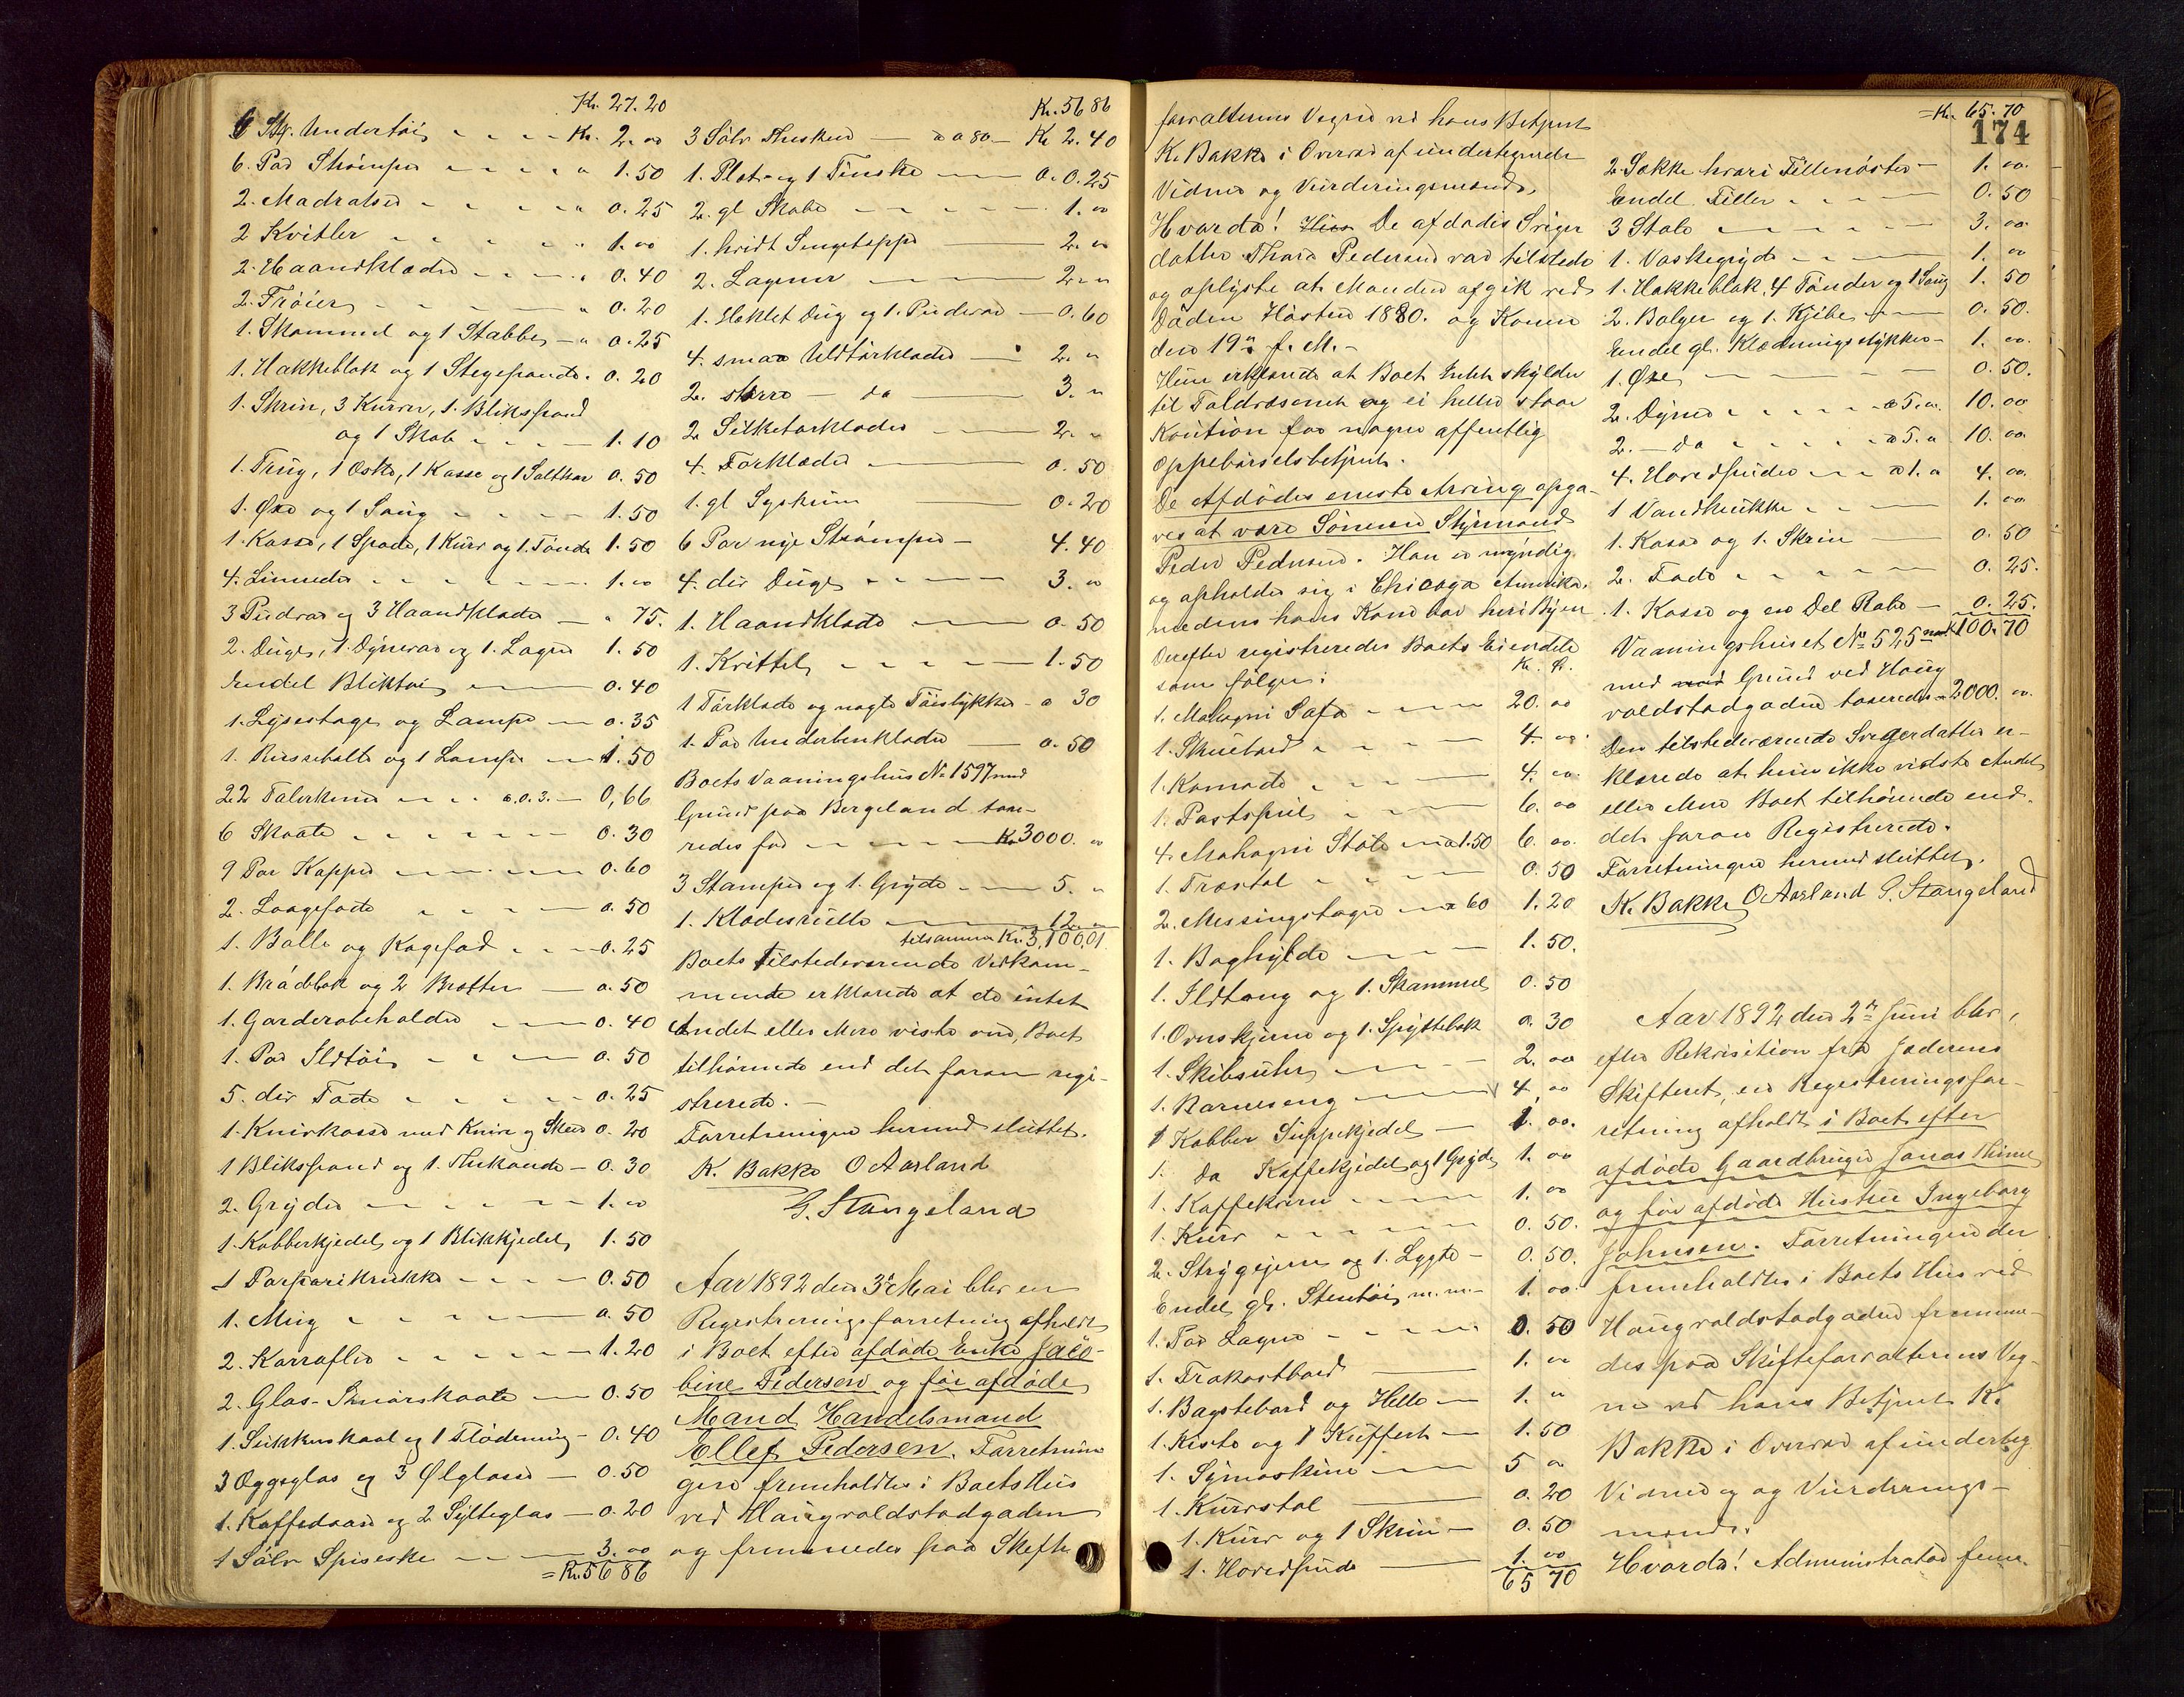 Kr. 27.20
6 Stk. Undertøi - - - - Kr. 2. 00
6. Par Strømper - - - - " 1.50
2. Madratser - - - - " 0.25
2 Kvitler - - - - " 1. 00
2. Haandklæder - - - - " 0.40
2. Trøier - - - - " 0.20
1. Skammel og 1 Stabbe - " 0.25
1. Hakkeblok og 1 Stegepande. 0.20
1. Skrin, 3 Kurve, 1. Blikspand
og 1 Skab - - - - 1.10
1. Trug, 1 Æske, 1 Kasse og 1 Saltkar 0.50
1. Øxe og 1 Saug - - - - 1.50
1. Kasse, 1 Spade, 1 Kurv og 1. Tønde 1.50
4. Linneder - - - - 1. 00
3 Pudevar og 3 Haandklæde - " 75.
2. Duge, 1. Dynevar og 1. Lagen 1.50
Endel Bliktøi - 0.40
1. Lysestage og Lampe - 0.35
1. Lampe - 1.50
22 Talerkener - - - a.0.3. - 0,66
6 Skaale - - - - 0.30
9 Par Kopper - - - - 0.60
2. Laagefade - - - - 0.50
1. Bolle og Kagefad - - - 0.25
1. Brødblok og 2 Bretter - 0.50
1. Garderobeholder - 0.40
1. Par Ildtøi - - - 0.50
5. div Fade - - - - 0.25
1. Knivkasse med Knive og Skeer 0.20
1 Blikspand og 1. Thekande - 0.30
2. Gryder - - - - 1. 00
1. Kobberkjedel og 1 Blikkjedel, 1.50
1 - - - - 0.50
1. Mug - - - - 0.50
2. Karafler - - - - 1.20
2. Glas-Smørskaale - 0.50
1. Sukkerskaal og 1 Flødemug - 0.40
3 Æggeglas og 3 Ølglase - 0.50
1. Kaffedaase og 2 Sylteglas - 0.20
1 Sølv Spiseske - 3.00
= Kr. 56 86
Kr. 56 86
3 Sølv Theskeer - a 80 - Kr 2.40
1. Plet- og 1 Tinske - 0.0.25
2. gl Skabe - - - - 1. 00
1. hvidt Sengeteppe - 2. 00
2. Lagener - 2. "
1. Heklet Dug og 1. Pudevar - 0.60
4. smaa Uldtørklæder - 2. "
2. større - do - 3. "
2 Silketørklæder - 2. "
4. Forklæder - 0.50
1. gl Syskrin - 0.20
6 Par nye Strømper - 4.40
4. div Duge - - - 3. 00
1. Haandklæde - 0.50
1. Kvittel - - - - 1.50
1 Tørklæde og nogle Tøistykker - 0 30
1. Par Underbenklæder - 0.50
Boets Vaaningshus No 1597 med
Grund paa Bergeland taxe-
redes for - - - - Kr 3000. 00
3 Stamper og 1. Gryde - 5. "
1. Klæderulle - 12. 00
tilsammen Kr. 3,100,01
Boets tilstedeværende Vedkom-
mende erklærede at de intet
Andet eller Mere viste om, Boet
tilhørende end det foran regi-
strerede. -
Forretningen hermed sluttet.
K. Bakke O Aarland
G. Stangeland
Aar 1892 den 3die Mai blev en
Registreringsforretning afholdt
i Boet efter afdøde Enke Jaco-
bine Pedersen og før afdøde
Mand Handelsmand
Ellef Pedersen. Forretnin
gen fremholdtes i Boets Hus
ved Haugvaldstadgaden
og fremmedes paa Skifte
forvalterens Vegne ved hans Betjent
K. Bakke i Overvær af undertegnede
Vidner og Vurderingsmænd.
Hvorda! De afdødes Sviger
datter Thora Pedersen var tilstede
og oplyste at Manden afgik ved
Døden Høsten 1880. og Konen
den 19de f. M. -
Hun erklærede at Boet Intet skylder
til Toldvæsenet og ei heller staar
Kaution for nogen offentlig
Oppebørselsbetjent.
De Afdødes eneste Arving opga-
ves at være Sønnen Styrmand
Peder Pedersen. Han er myndig
og opholder sig i Chicago Amerika.
medens hans Kone bor her i Byen
Derefter registreredes Boets Eiendele
som følger: Kr. Ø.
1. Mahogni Sofa - - - 20. 00
1. Skuebord - - - - 4. 00
1. Komode - - - 4. 00
1. - - - 6. 00
4. Mahogni Stole - a 1.50 6. 00.
1. Træstol - - - - 0.50
2. Messingstager - a 60 1.20
1. Boghylde - - - 1.50.
1. Ildtang og 1. Skammel 0.50
1. Ovnskjerm og 1. Spyttebak 0.30
1. Skibsuhr - - - 2. 00
1. Barneseng - 4. 00
1 Kobber Suppekjedel - 1. 00.
1. do Kaffekjedel og 1 Gryde 1. 00
1. Kaffekvern - - - - 1. 00
1. Kurv - - - - 0.50.
2. Strygejern og 1. Lygte - 0.50.
Endel gl. Stentøi m. m. - 1. 00
1. Par Lagen - - - - 0.50
1. Frokostbord - 1. 00
1. Bagstebord og Helle - 1. "
1. Kiste og 1 Kuffert - 1.50
1. Symaskine - 5 "
1. Kurvstol - 0.20
1. Kurv og 1 Skrin - 0.50
1. Hovedpude - 1. 00
65 70
= Kr. 65.70
174
2. Sække hvori - 1. 00.
Endel Filler - - - 0.50
3 Stole - - - - 3. 00
1. Vaskegryde - - - 1. 00
1. Hakkeblok, 4 Tønder og 1 Saug 1.50
2. Baljer og 1. Kjøbe - 0.50.
Endel gl. Klædningsstykker - 1. 00.
1. Øxe - 0.50.
2. Dyner - - - - a 5. 00. 10. 00
2. - do - - - - a 5. " 10. 00
4. Hovedpuder - - a 1. " 4. 00
1 Vandkrukke - - - 1. 00
1. Kasse og 1. Skrin - 0.50
2. Fade - - - - 0.25.
1. Kasse og en Del Rabe - 0.25.
100.70
Vaaningshuset No 525
med Grund ved Haug
valdstadgaden taxeredes - 2000. 00.
Den tilstedeværende Svigerdatter er-
klærede at hun ikke vidste Andet
eller Mere Boet tilhørende end
det foran Registrerede.
Forretningen hermed sluttet.
K. Bakke O Aarland G. Stangeland
Aar 1892 den 2den Juni blev,
efter Rekvisition fra Jæderens
Skifteret, en Registreringsfor-
retning afholdt i Boet efter
afdøde Gaardbruger Jonas Thime
og før afdøde Hustru Ingeborg
Johnsen. Forretningen der
fremholdtes i Boets Hus ved
Haugvaldstadgaden fremme-
des paa Skifteforvalterens Veg-
ne ved hans Betjent K.
Bakke i Overvær af underteg
Vidner og og Vurderings-
mænd.
Hvorda! Administrator frem-